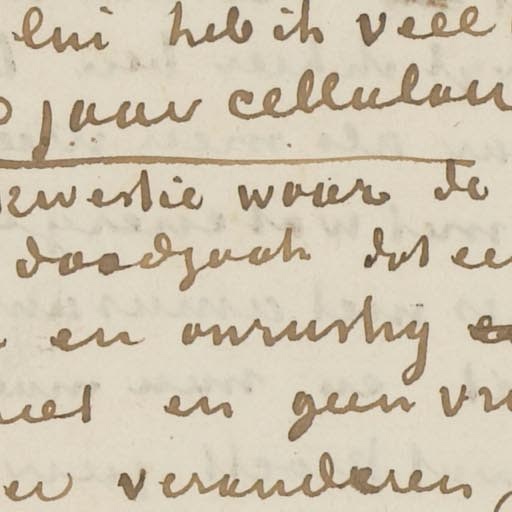 lui heb ik veel
jaar cellulair
kwestie waar de
doodgaat dat ee
en onrustig
niet en geen vr
er veranderen